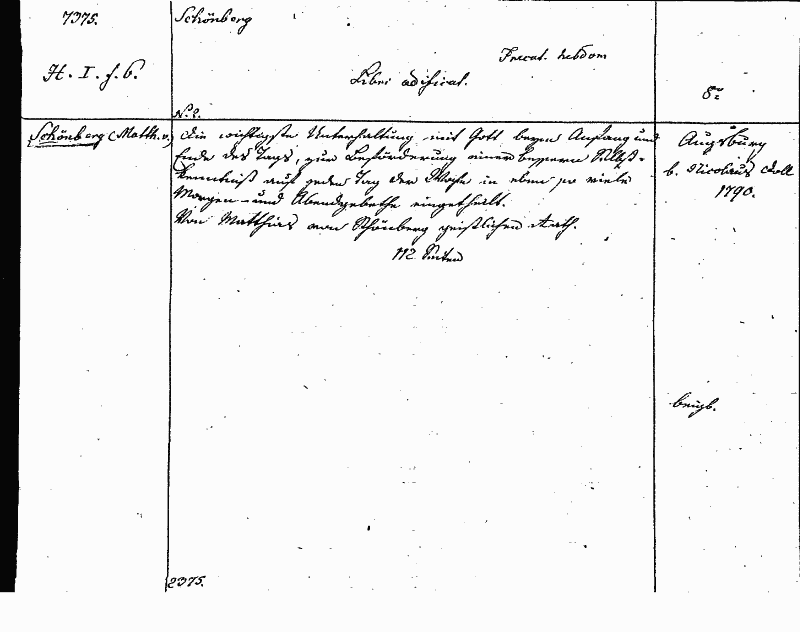 7375.
Schönberg
H. I. f. 6.
Precat. hebdom
Libri aedificat.
8º
N. 2.
Schönberg (Matth. v.)
Die wichtigste Unterhaltung mit Gott beym Anfang und
Ende des Tags, zur Beförderung einer bessern Selbst-
kenntniß auf jeden Tag der Woche in eben so viele
Morgen- und Abendgebethe eingetheilt.
Von Matthias von Schönberg geistlichen Rath.
112 Seiten
Augsburg
b. Nicolaus Doll
1790.
beigb.
2375.